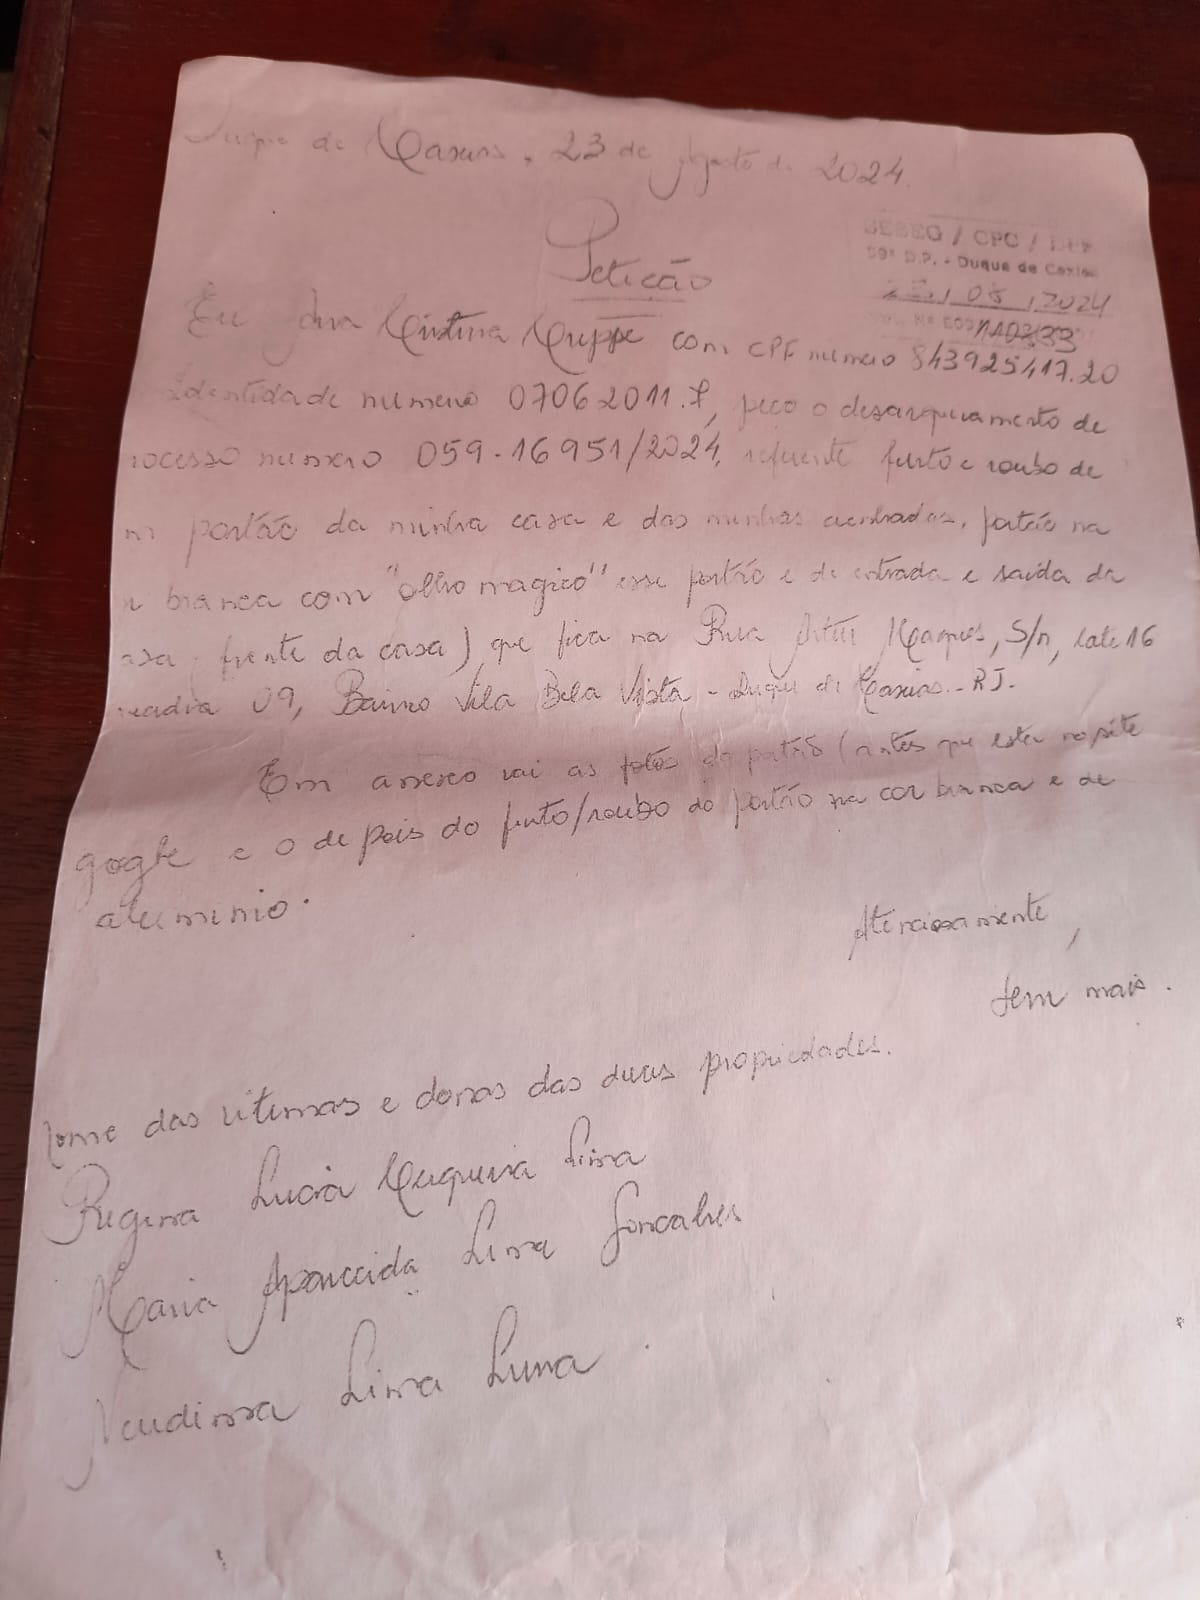 Duque de Caxias, 23 de Agosto de 2024.
Petição
SESEG / CPC /
59ª D.P. - Duque de Caxias
/ 08 / 2024
Eu Ana Cristina com CPF número 843925417.20
Identidade número 07062011.7, peço o desarquivamento de
rocesso número 059-16951/2024, referente furto e roubo de
m portão da minha casa e das minhas cunhadas, portão na
r branca com "olho magico" esse portão e de entrada e saida da
asa, frente da casa) que fica na Rua Artur Marques, S/n, late 16
uadra 09, Bairro Vila Bela Vista - Duque de Caxias - RJ.
Em anexo vai as fotos do portão (antes que esta no site
gogle e o de pois do furto/roubo do portão na cor branca e de
aluminio.
Atenciosamente,
Sem mais.
Nome das vitimas e donas das duas propriedades.
Regina Lucia Lima
Maria Aparecida Lima Goncalves
Lima Luna